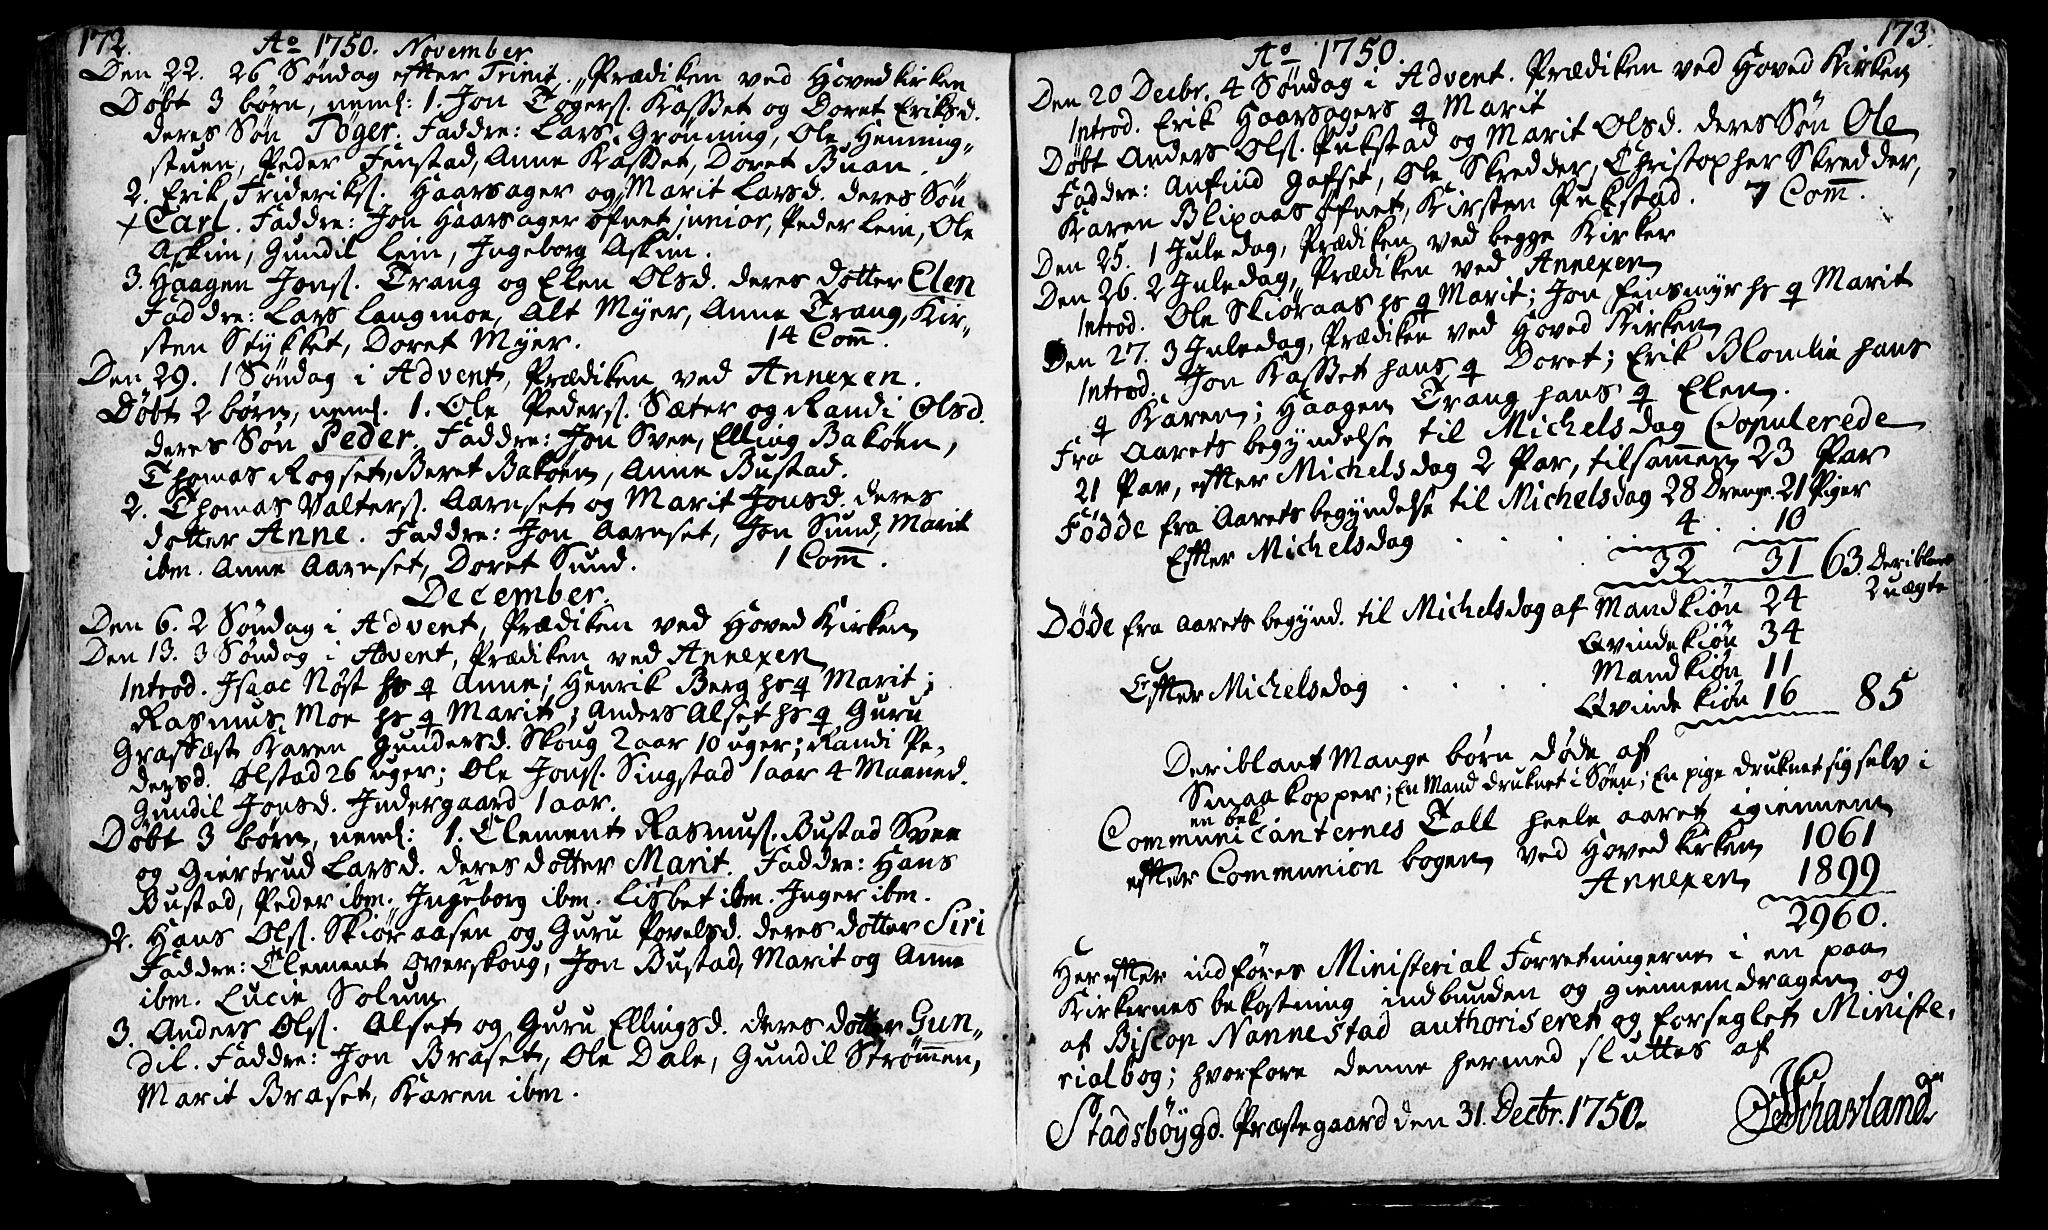 172.
Ao 1750. November
Den 22. 26 Søndag efter Trinit. Prædiken ved Hovedkirken
Døbt 3 børn, neml: 1. Jon Tøgersl. Kasset og Doret Eriksd.
deres Søn Tøger. Faddre: Lars Grønning, Ole Henning-
stuen, Peder Fenstad, Anne Kasset, Doret Buan.
2. Erik Frideriksl. Haarsager og Marit Larsd. deres Søn
+ Carl. Faddre: Jon Haarsager øfnet junior, Peder Lein, Ole
Askim, Gundil Lein, Ingeborg Askim.
3. Haagen Jonsl. Trang og Elen Olsd. deres dotter Elen
Faddre: Lars Langmoe, Alt Myer, Anne Trang, Kir-
sten Stykket, Doret Myer. 14 Com̄.
Den 29. 1 Søndag i Advent, Prædiken ved Annexen.
Døbt 2 børn, neml. 1. Ole Pedersl. Sæter og Randi Olsd.
deres Søn Peder. Faddre: Jon Sven, Elling Bakøen,
Thomas Rogset, Beret Bakøen, Anne Bustad.
2. Thomas Valtersl. Aarnset og Marit Jonsd. deres
dotter Anne. Faddre: Jon Aarnset, Jon Sund, Marit
ibm. Anne Aarnset, Doret Sund. 1 Com̄.
December.
Den 6. 2 Søndag i Advent, Prædiken ved Hoved Kirken
Den 13. 3 Søndag i Advent, Prædiken ved Annexen
Introd. Isaac Nøst hs q Anne; Henrik Berg hs q Marit;
Rasmus Moe hs q Marit; Anders Alset hs q Guru
Græssæst Karen Gundersd. Skoug 2 aar 10 uger; Randi Pe-
dersd. Olstad 26 uger; Ole Jonsl. Singstad 1 aar 4 Maaned.
Gundil Jonsd. Indergaard 1 aar.
Døbt 3 børn, neml: 1. Clement Rasmusl. Bustad Sven
og Giertrud Larsd. deres dotter Marit. Faddre: Hans
Bustad, Peder ibm. Ingeborg ibm. Lisbet ibm. Inger ibm.
2. Hans Olsl. Skiøraasen og Guru Povelsd. deres dotter Siri
Faddre: Clement Overskoug, Jon Bustad, Marit og Anne
ibm. Lucie Solum
3. Anders Olsl. Alset og Guru Ellingsd. deres dotter Gun-
dil. Faddre: Jon Braset, Ole Dale, Gundil Strøm̄en,
Marit Braset, Karen ibm.
173.
Ao 1750.
Den 20 Decbr. 4 Søndag i Advent. Prædiken ved Hoved Kirken
Introd. Erik Haarsagers q Marit
Døbt Anders Olsl. Pukstad og Marit Olsd. deres Søn Ole
Faddre: Anfind Gafset, Ole Skredder, Christopher Skredder,
Karen Blixaas øfnet, Kirsten Pukstad. 7 Com̄.
Den 25. 1 Juledag, Prædiken ved begge Kirker
Den 26. 2 Juledag, Prædiken ved Annexen
Introd. Ole Skiøraas hs q Marit; Jon Fensmyr hs q Marit
Den 27. 3 Juledag, Prædiken ved Hoved Kirken
Introd. Jon Kasset hans q Doret; Erik Blomlie hans
q Karen; Haagen Trang hans q Elen.
Fra Aarets begyndelse til Michelsdag Copulerede
21 Par, efter Michelsdag 2 Par, tilsammen 23 Par
Fødde fra Aarets begyndelse til Michelsdag 28 Drenge. 21 Piger
Efter Michelsdag . . . . 4 . . 10
32 31 63. Deriblant
2 uægte
Døde fra aarets begynd. til Michelsdag af Mandkiøn 24
Qvindekiøn 34
Efter Michelsdag . . . . Mandkiøn 11
Qvindekiøn 16 85
Deriblant Mange børn døde af
Smaakopper; En Mand druknet i Søen; En pige druknet sig selv i
en bek
Communicanternes Tall heele aaret igiennem
efter Communion bogen ved Hovedkirken 1061
Annexen 1899
2960.
Herefter indføres Ministerial Forretningerne i en paa
Kirkernes bekostning indbunden og giennemdragen og
af Biscop Nannestad authoriseret og forseglet Ministe-
rialbog; hvorfore denne hermed sluttes af
Stadsbøygd. Præstegaard den 31. Decbr. 1750. Scharland